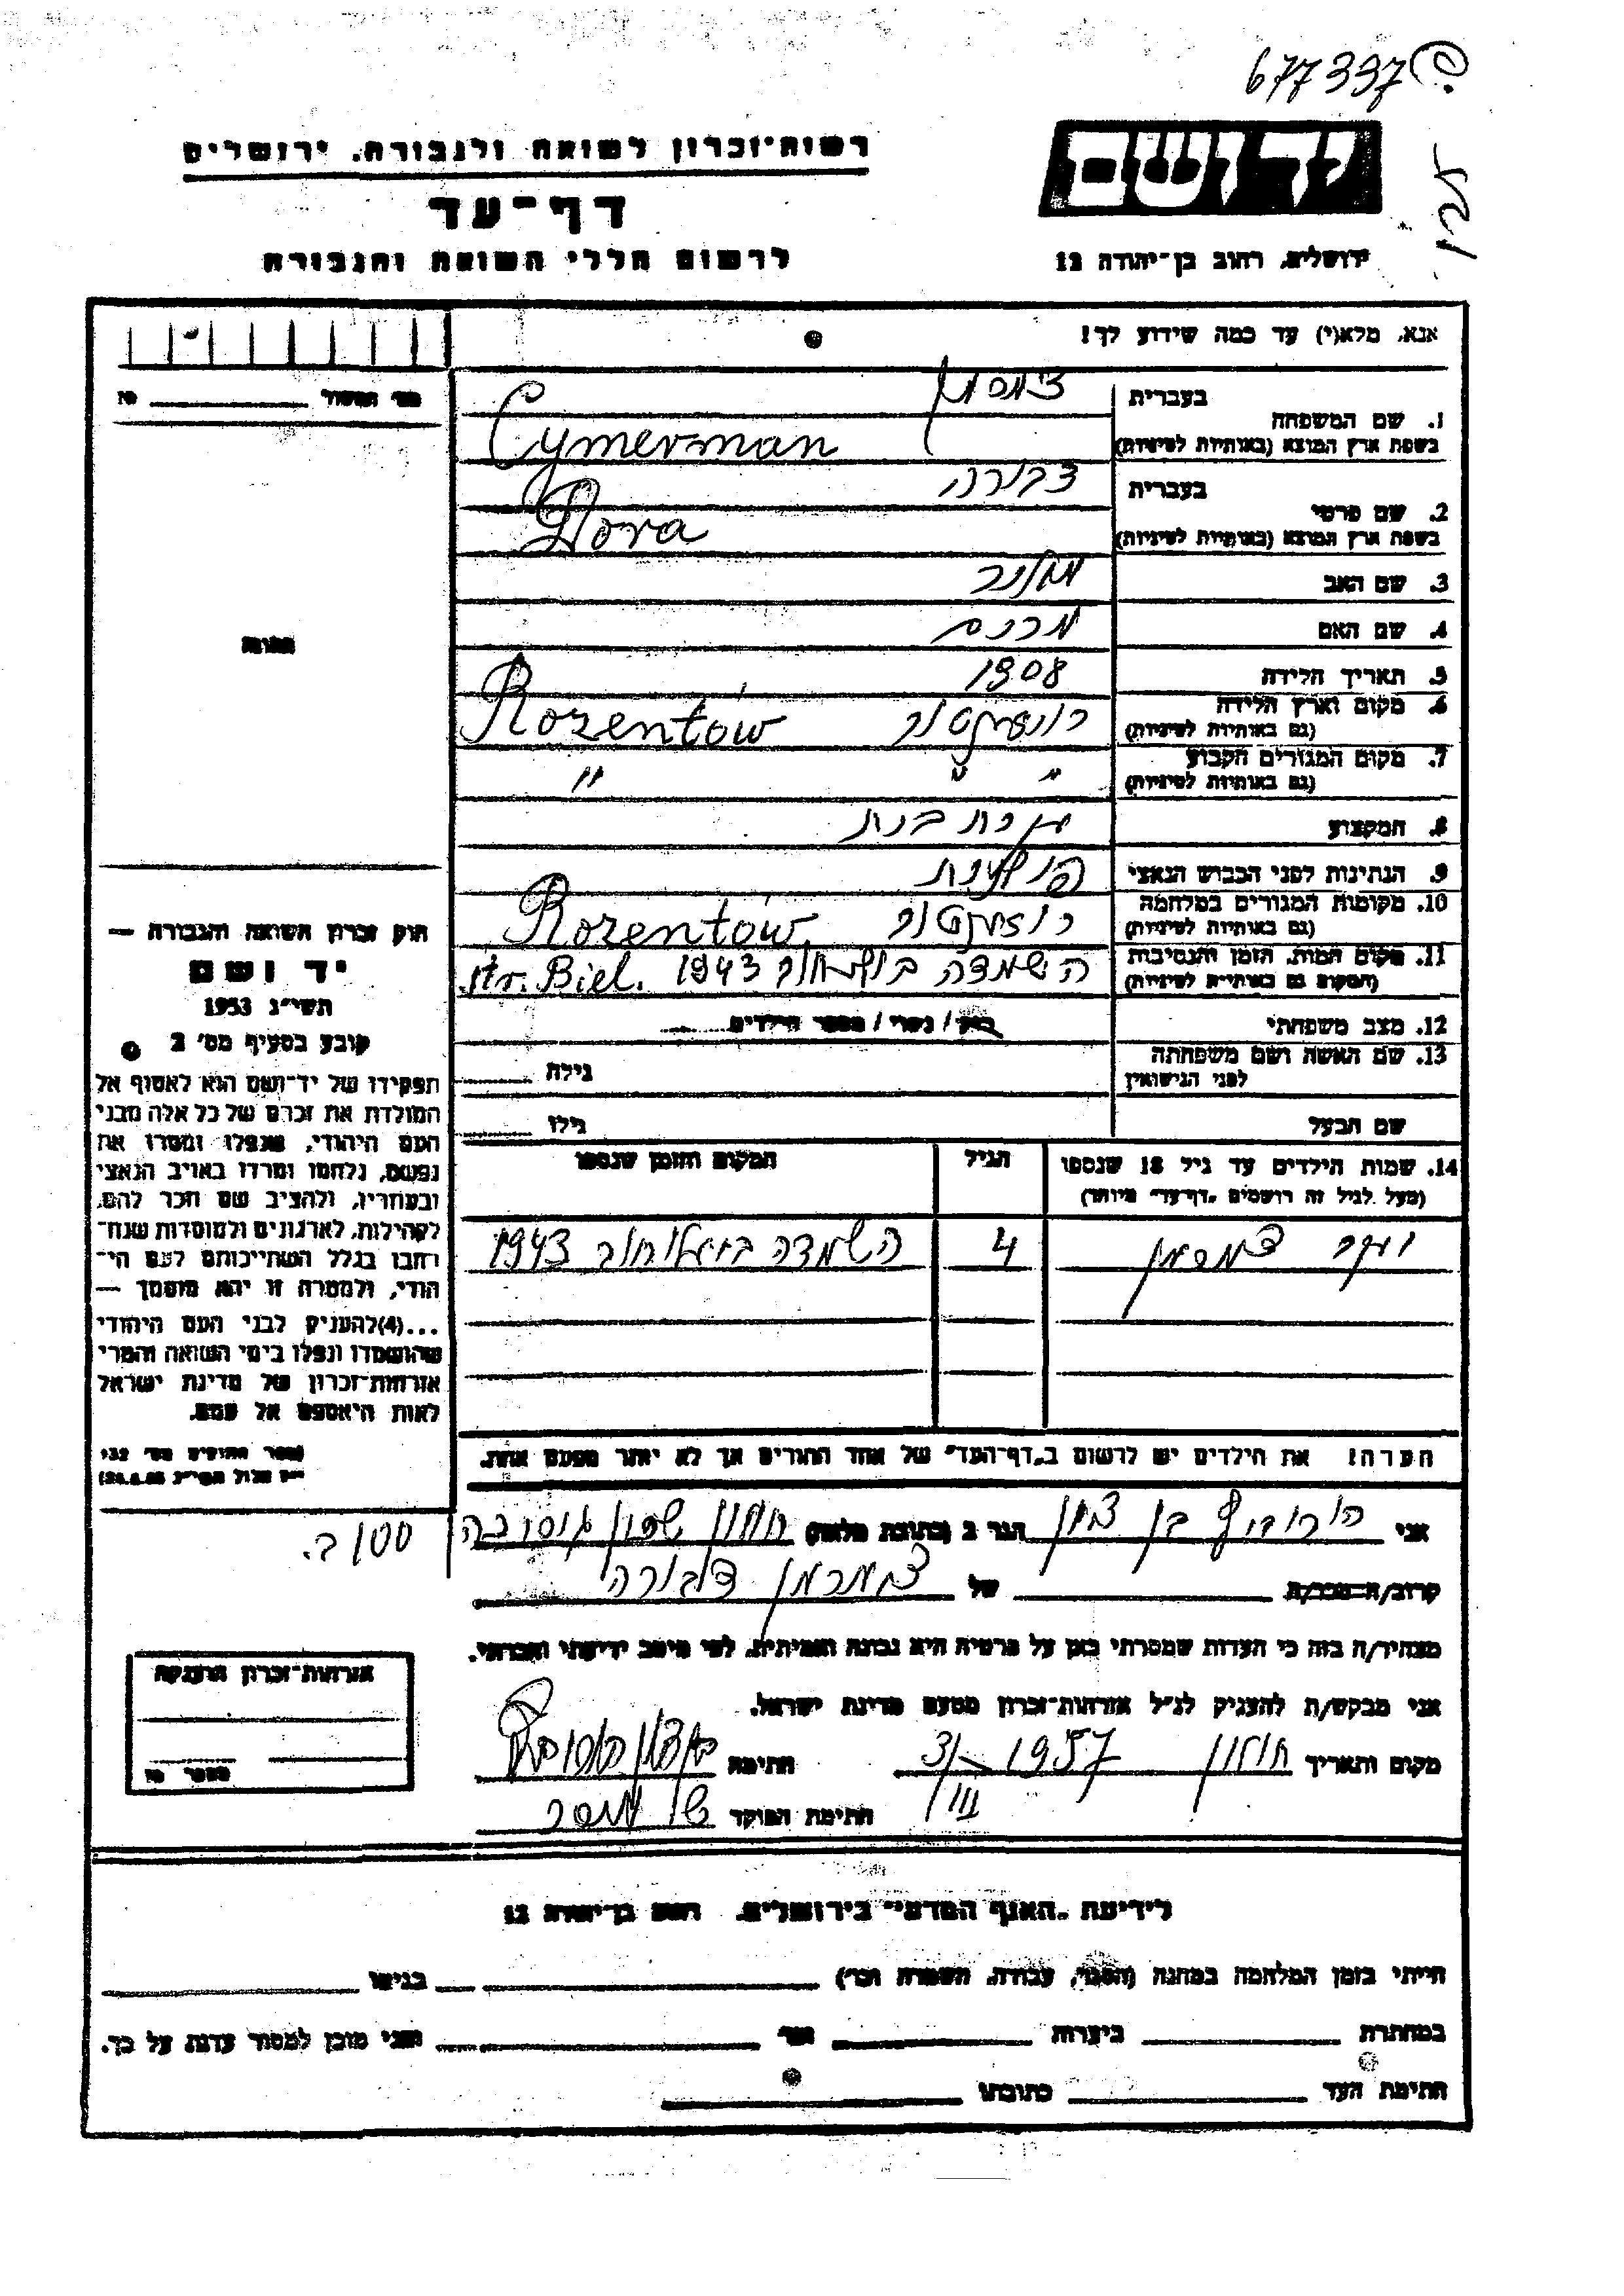 677337
רשות-זכרון לשואה ולגבורה, ירושלים
יד ושם
דף-עד
לרשום חללי השואה והגבורה
ירושלים, רחוב בן-יהודה 12
אנא, מלא(י) עד כמה שידוע לך!
1. שם המשפחה
בעברית צימרמן
בשפת ארץ המוצא (באותיות לטיניות) Cymerman
2. שם פרטי
בעברית דבורה
בשפת ארץ המוצא (באותיות לטיניות) Dora
3. שם האב
4. שם האם
5. תאריך הלידה 1908
6. מקום וארץ הלידה
(גם באותיות לטיניות) Rozentów
7. מקום המגורים הקבוע
(גם באותיות לטיניות) " " "
8. המקצוע
9. הנתינות לפני הכבוש הנאצי פולנית
10. מקומות המגורים במלחמה
(גם באותיות לטיניות) Rozentów
11. מקום המות, הזמן והנסיבות
(המקום גם באותיות לטיניות) השמדה 1943 str. Biel.
12. מצב משפחתי רווק / נשוי / מספר הילדים
13. שם האשה ושם משפחתה
לפני הנישואין גילה
שם הבעל גילו
14. שמות הילדים עד גיל 18 שנספו
(מעל לגיל זה רושמים "דף-עד" מיוחד)
הגיל
המקום והזמן שנספו
צימרמן 4 השמדה 1943
הערה! את הילדים יש לרשום ב"דף-העד" של אחד ההורים אך לא יותר מפעם אחת.
מס' התיק No
תמונה
חוק זכרון השואה והגבורה —
יד ושם
תשי"ג 1953
קובע בסעיף מס' 2
תפקידו של יד-ושם הוא לאסוף אל
המולדת את זכרם של כל אלה מבני
העם היהודי, שנפלו ומסרו את
נפשם, נלחמו ומרדו באויב הנאצי
ובעוזריו, ולהציב שם וזכר להם,
לקהילות, לארגונים ולמוסדות שנח-
רבו בגלל השתייכותם לעם הי-
הודי, ולמטרה זו יהא מוסמך —
...(4) להעניק לבני העם היהודי
שהושמדו ונפלו בימי השואה והמרי
אזרחות-זכרון של מדינת ישראל
לאות היאספם אל עמם.
ספר החוקים מס' 132
אני הורוביץ בן ציון הגר ב (כתובת מלאה) חולון
קרוב/ה מכר/ה של צימרמן דבורה
מצהיר/ה בזה כי העדות שמסרתי כאן על פרטיה היא נכונה ואמיתית, לפי מיטב ידיעתי והכרתי.
אני מבקש/ת להעניק לנ"ל אזרחות-זכרון מטעם מדינת ישראל.
מקום ותאריך חולון 31/III 1957 חתימה
חתימת הפוקד
אזרחות-זכרון הוענקה
מספר No
לידיעת "האגף המדעי" בירושלים, רחוב בן-יהודה 12
הייתי בזמן המלחמה במחנה (הסגר, עבודה, השמדה וכו') בגיטו
במחתרת ביערות ועד ואני מוכן למסור עדות על כך.
חתימת העד כתובתו